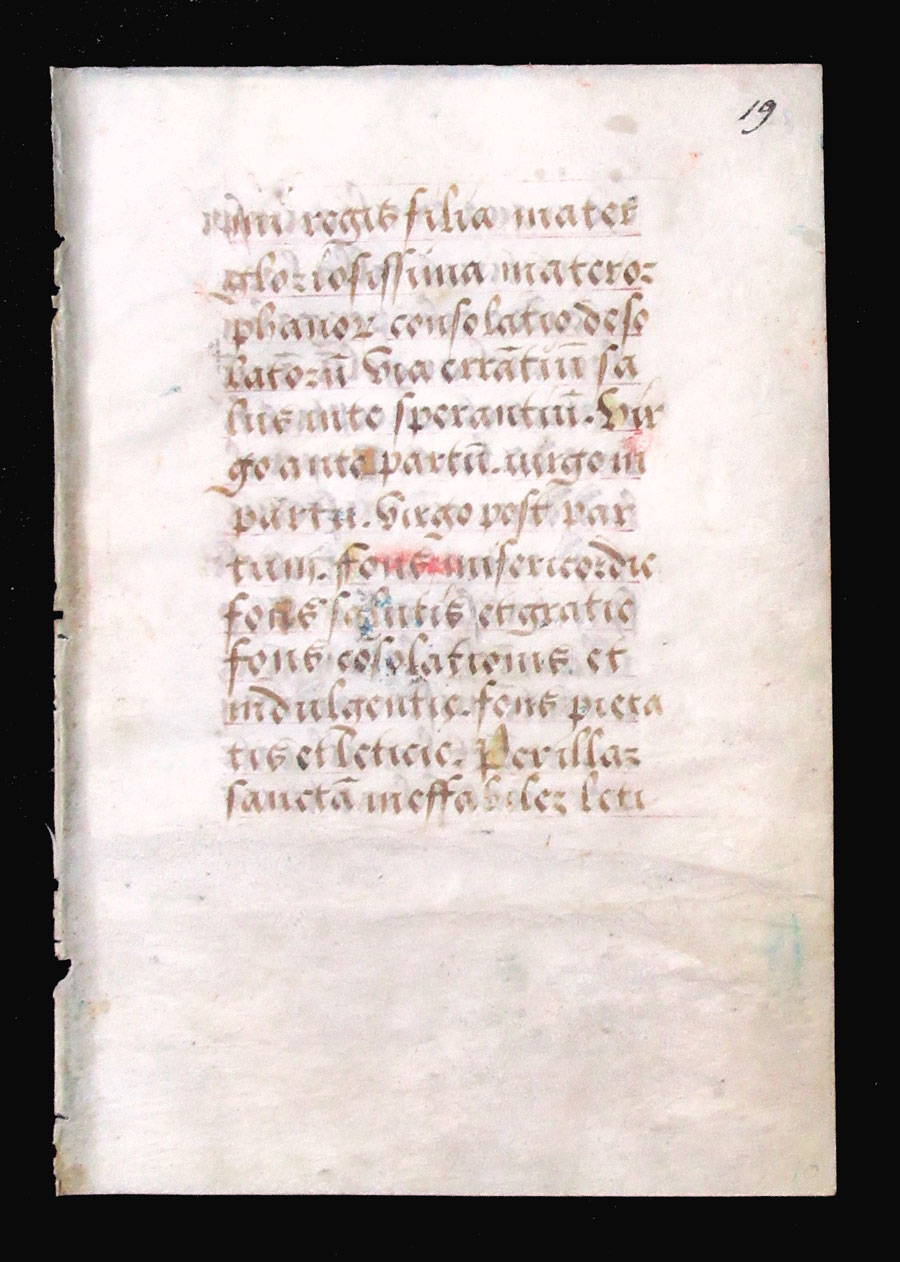 19
regis filia mater
gloriosissima mater or
phanoꝝ consolatio deso
latorū Via errātiū sa
lus in te sperantiū. Vir
go ante partū. uirgo in
partu. Virgo post par
tum. ffons misericordie
fons salutis et gratie
fons cōsolationis et
indulgentie. fons pieta
tis et leticie. Per illaz
sanctā ineffabilez leti